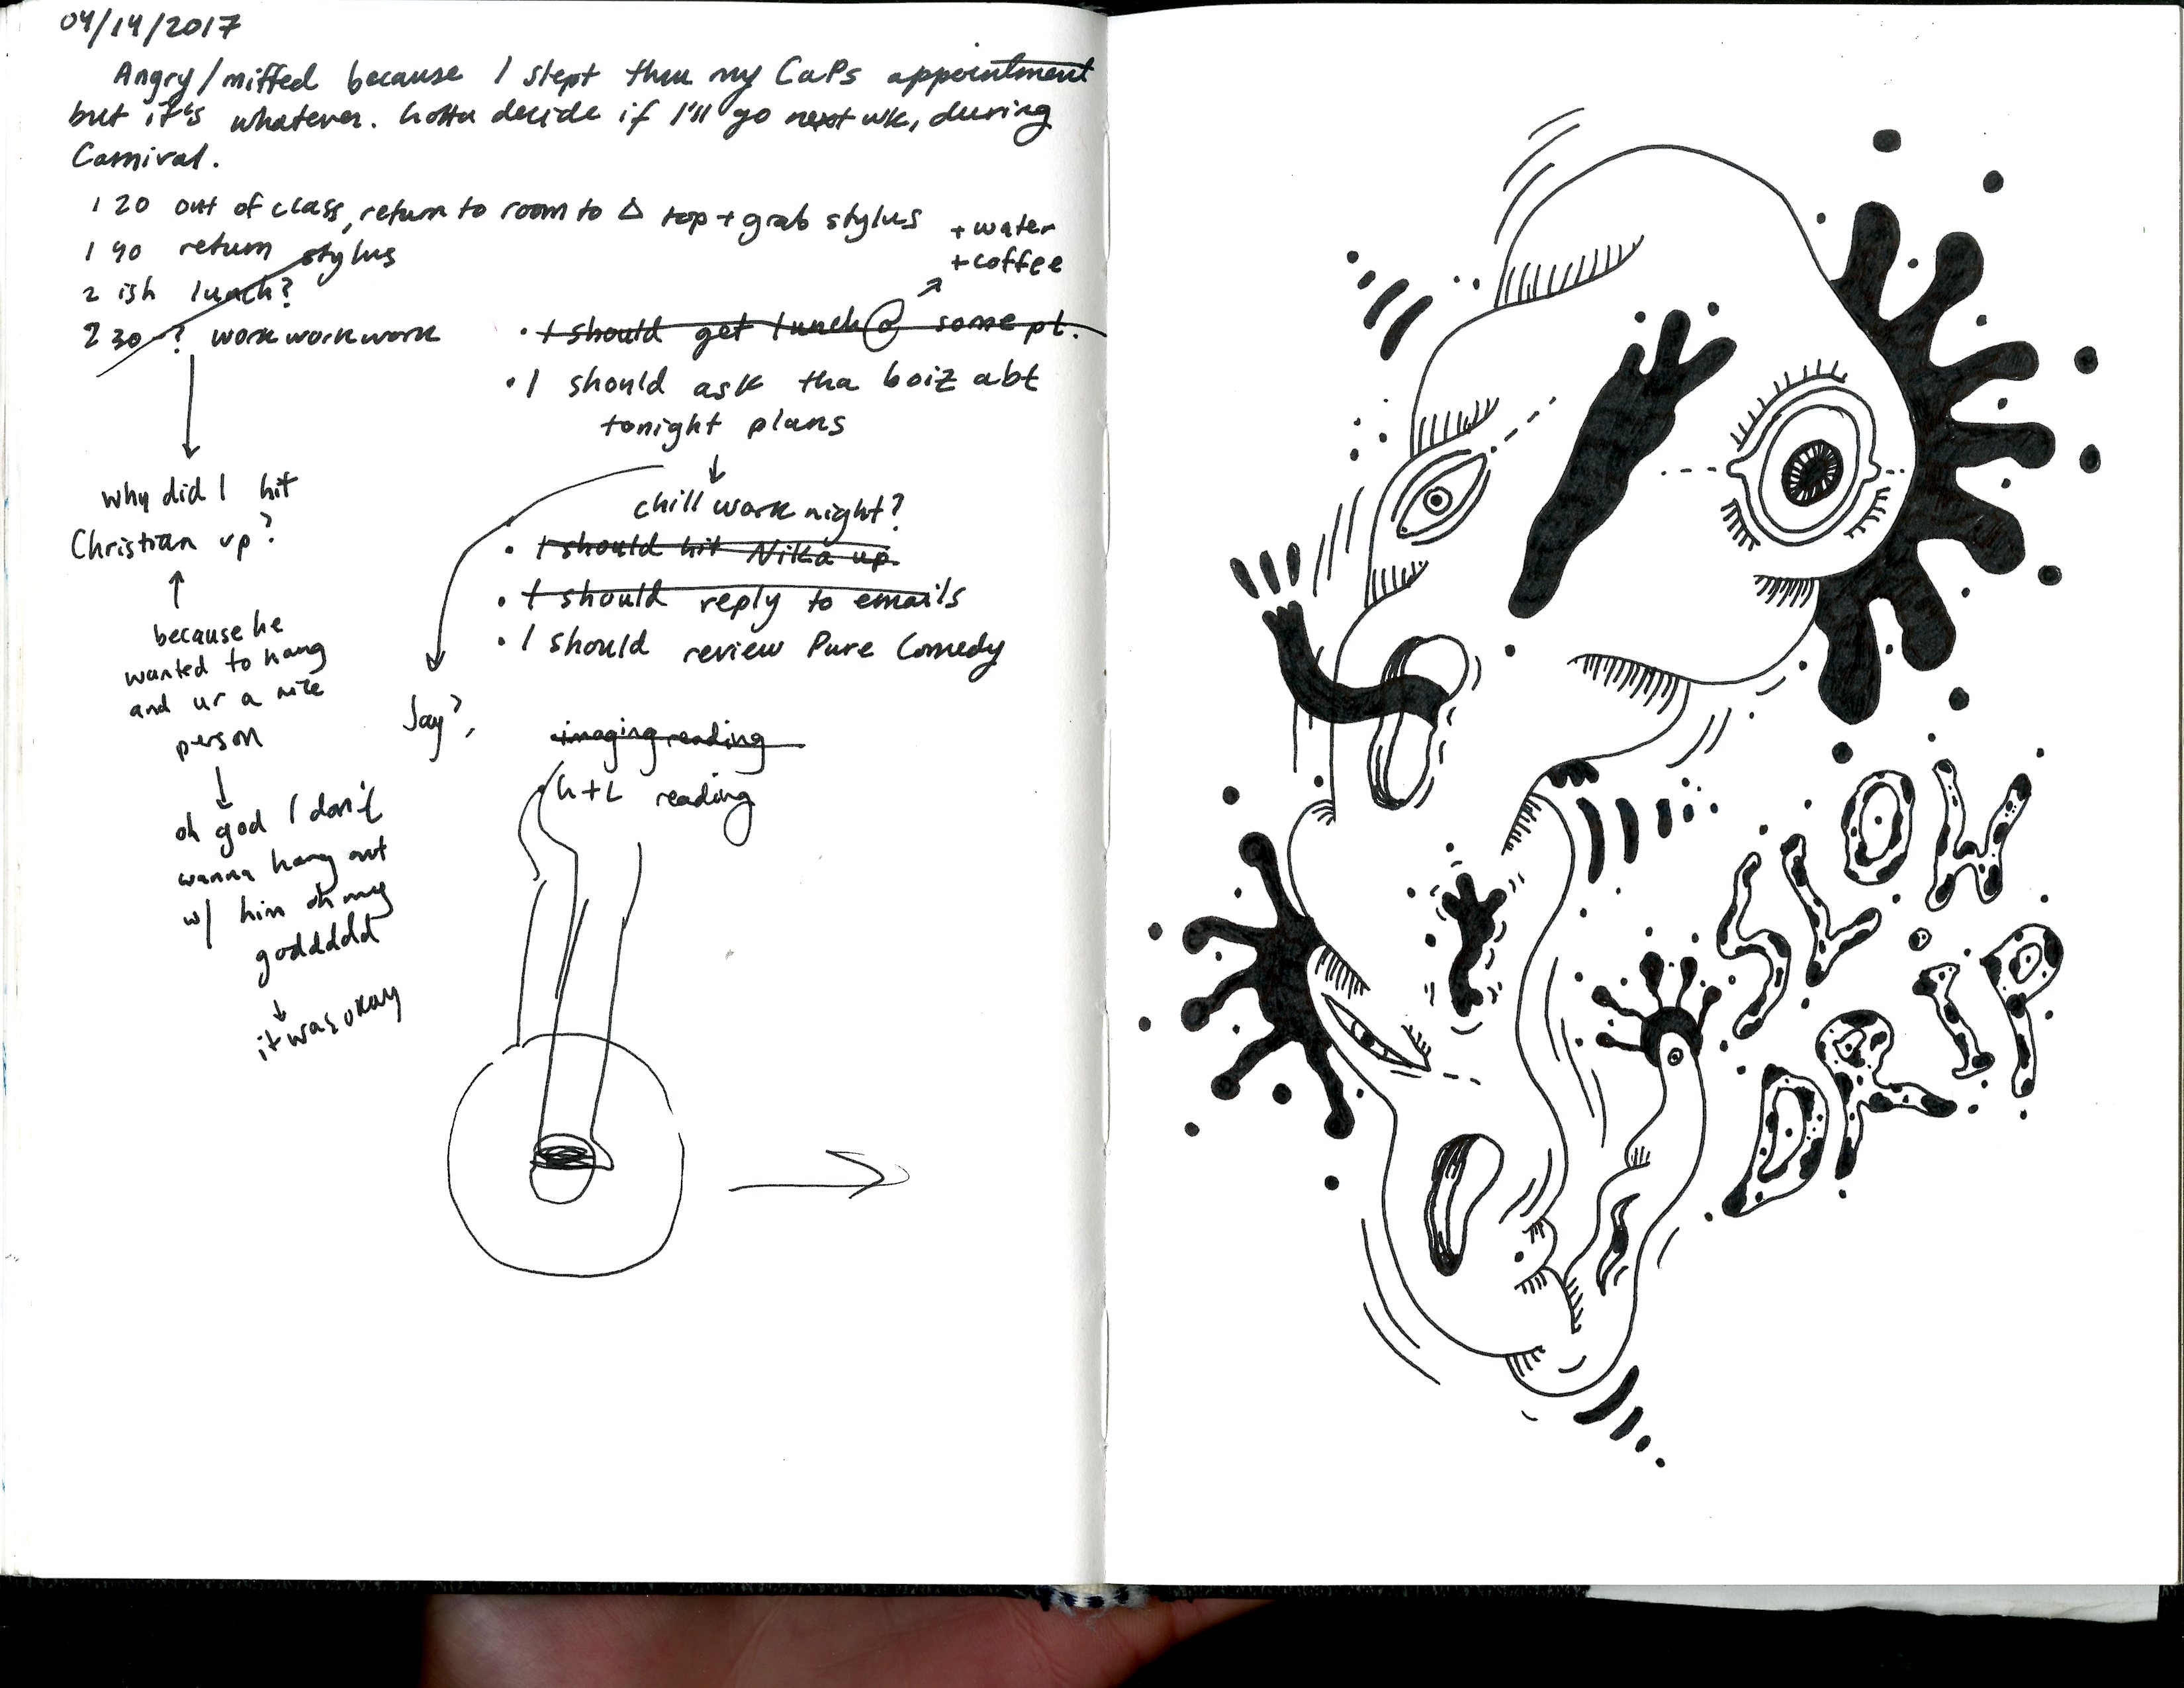 04/14/2017
Angry/miffed because I slept thru my CaPs appointment
but it's whatever. Gotta decide if I'll go next wk, during
Carnival.
1 20 out of class, return to room to Δ top + grab stylus
+ water
+ coffee
1 40 return stylus
2 ish lunch?
2 30 - ? work work work
• I should get lunch @ some pt.
• I should ask tha boiz abt
tonight plans
↓
chill work night?
• I should hit Nika up.
• I should reply to emails
• I should review Pure Comedy
why did I hit
Christian up?
↑
because he
wanted to hang
and ur a nice
person
↓
oh god I don't
wanna hang out
w/ him oh my
goddddd
↓
it was okay
Jay?,
• imaging reading
• G+L reading
SLOW
DRIP